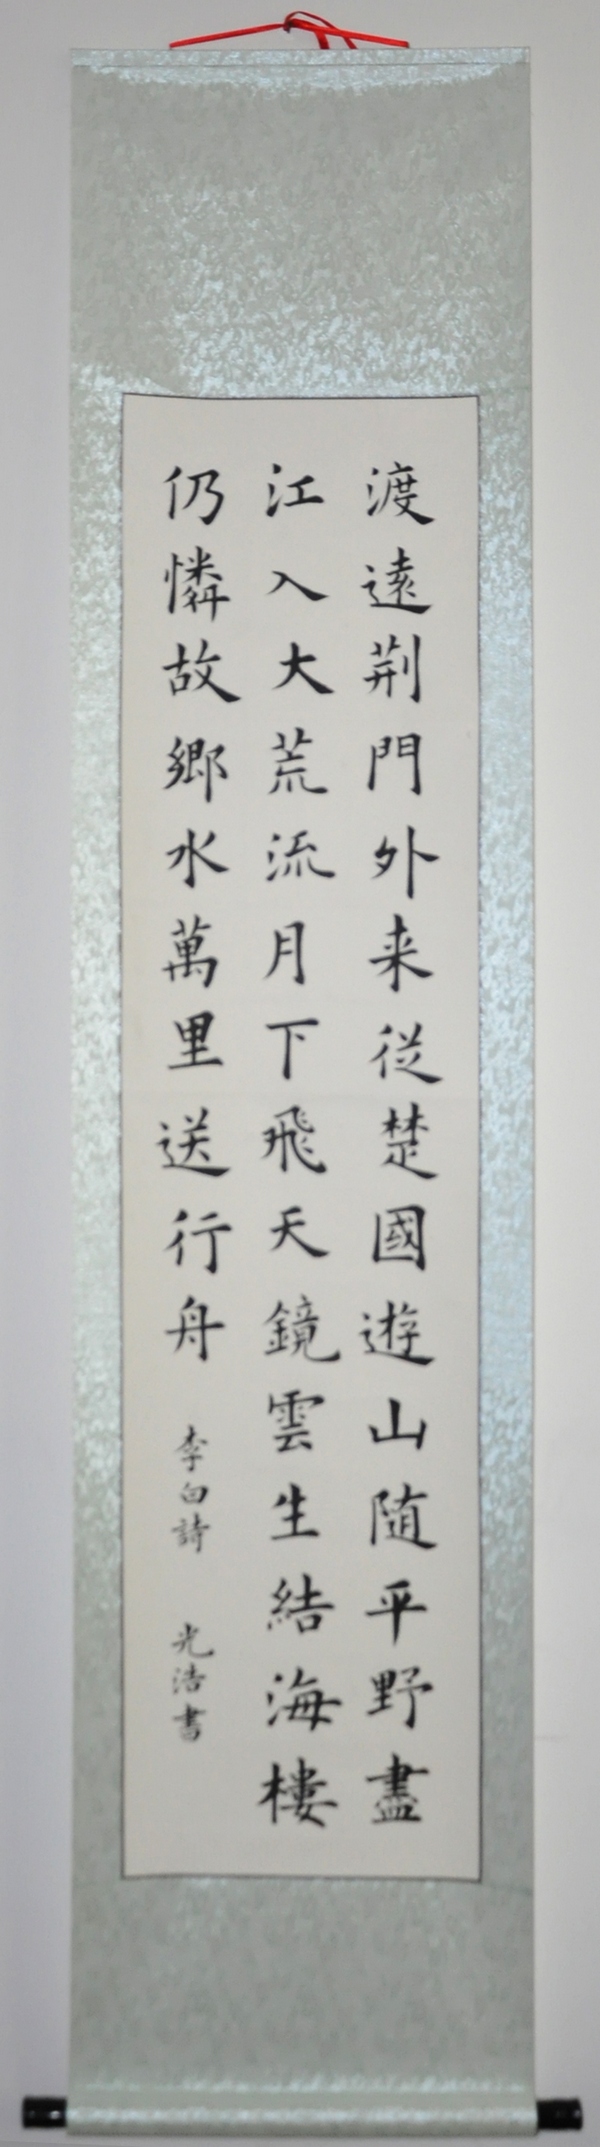 渡遠荆門外来從楚國遊山随平野盡
江入大荒流月下飛天鏡雲生結海樓
仍憐故鄉水萬里送行舟
李白詩
光浩書